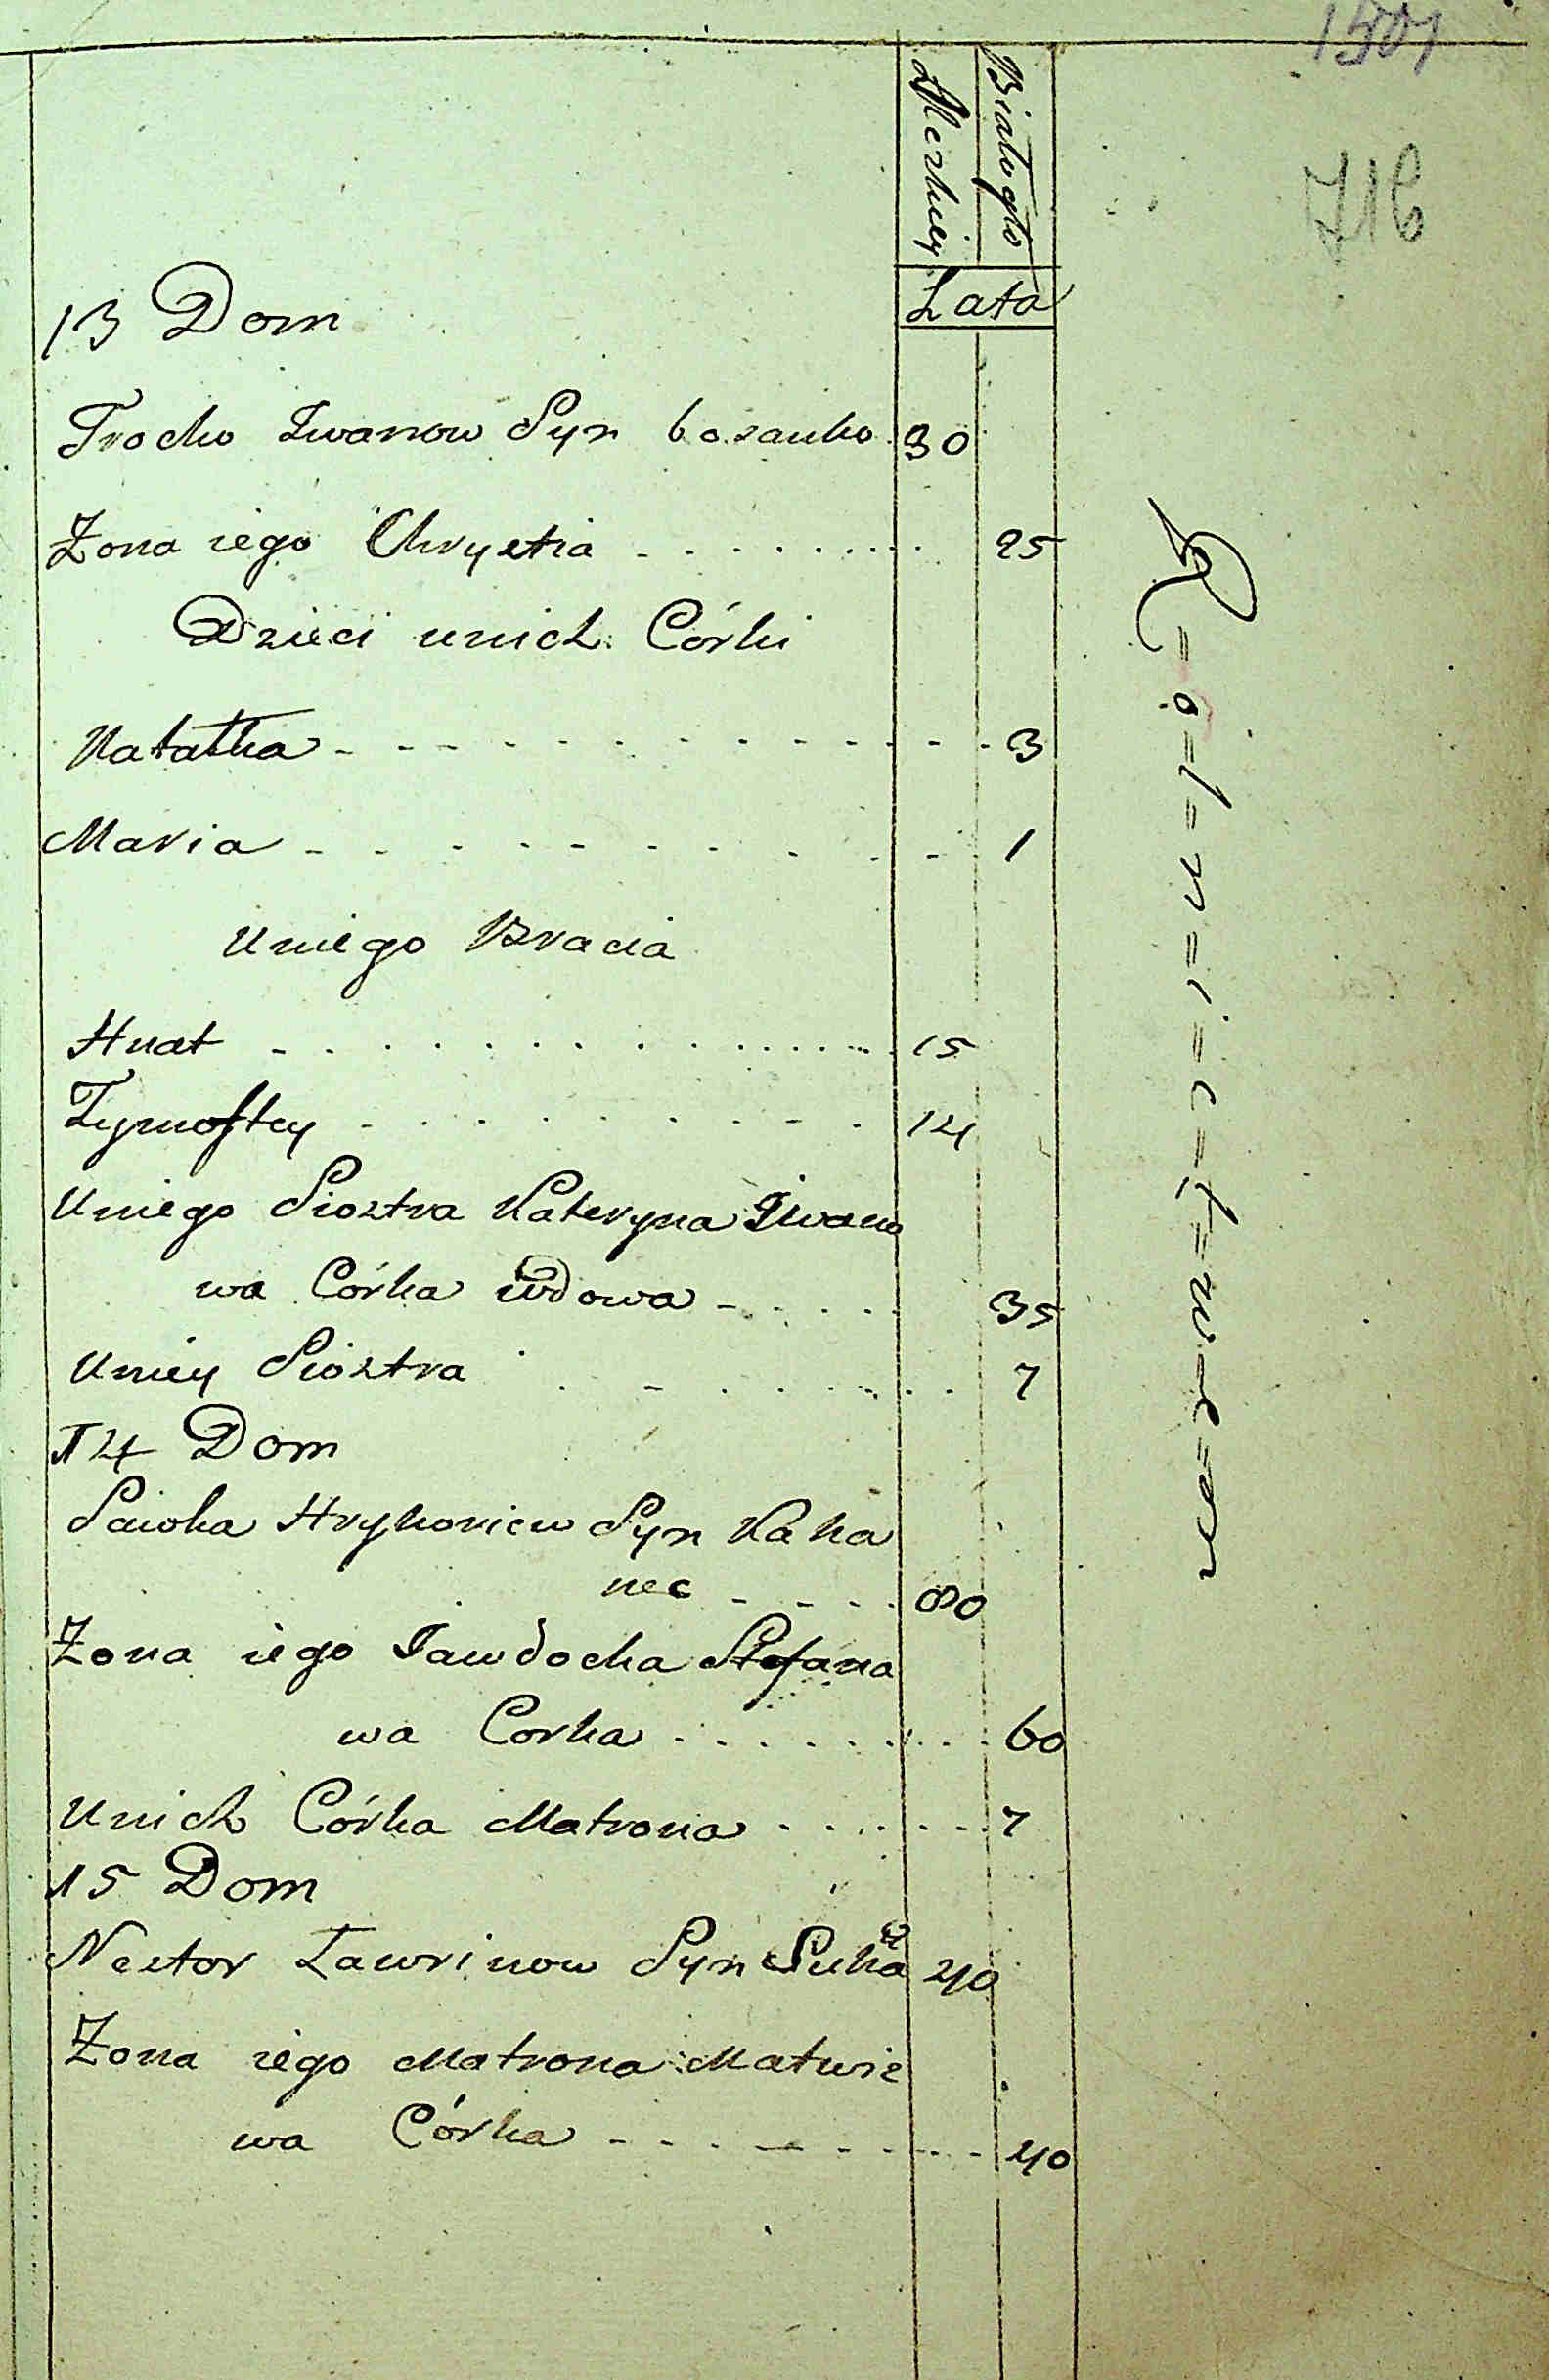 716
Męzkiey
Białogło
Lata
13 Dom
Trocho Iwanow Syn 30
Żona iego Chrystia - - - - - 25
Dzieci unich Córki
Natalka - - - - - 3
Maria - - - - - 1
Uniego Bracia
Hnat - - - - - 15
Tymoftey - - - - - 14
Uniego Siostra Kateryna Iwano
wa Córka wdowa - - - - - 35
Uniey Siostra - - - - - 7
14 Dom
Sawka Hryhoriew Syn Kaha
nec - - - - 80
Żona iego Jawdocha Stefana
wa Corka - - - - - 60
Unich Córka Matrona - - - - - 7
15 Dom
Nestor Lawrinow Syn 40
Żona iego Matrona Matwie
wa Córka - - - - - 40